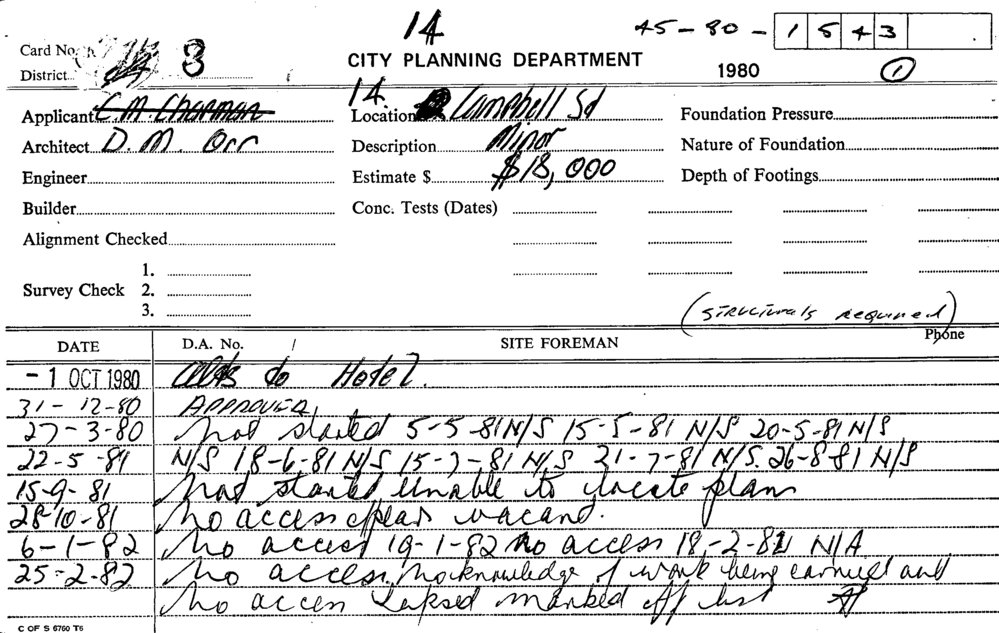 14
45-80-1543
Card No. 3
District
CITY PLANNING DEPARTMENT
1980 1
Applicant C. M. Chapman
14
Location Campbell Sd
Foundation Pressure
Architect D. M. Orr
Description Minor
Nature of Foundation
Engineer
Estimate $ $18,000
Depth of Footings
Builder
Conc. Tests (Dates)
Alignment Checked
Survey Check
1.
2.
3.
(structurals required)
DATE D.A. No. SITE FOREMAN Phone
-1 OCT 1980 Alts to Hotel.
31-12-80 APPROVED
27-3-80 Not started 5-5-81 N/S 15-5-81 N/S 20-5-81 N/S
22-5-81 N/S 18-6-81 N/S 15-7-81 N/S 31-7-81 N/S. 26-8-81 N/S
15-9-81 Not started unable to locate plans
28-10-81 No access appears vacant.
6-1-82 No access 19-1-82 No access 18-2-82 N/A
25-2-82 No access. No knowledge of work being carried out
No access Lapsed marked off list
C OF S 6760 T6